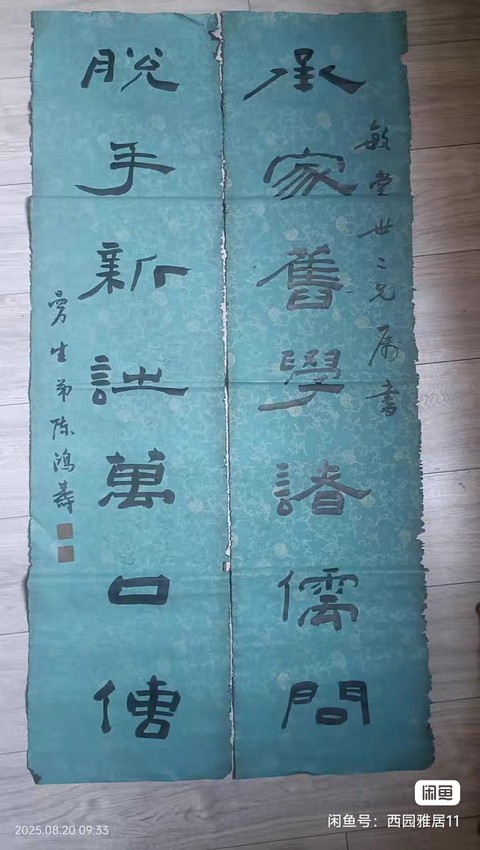 敏堂世二兄屬書
承家舊學諸儒問
脫手新詩萬口傳
曼生弟陳鴻壽
闲鱼
闲鱼号：西园雅居11
2025.08.20 09:33